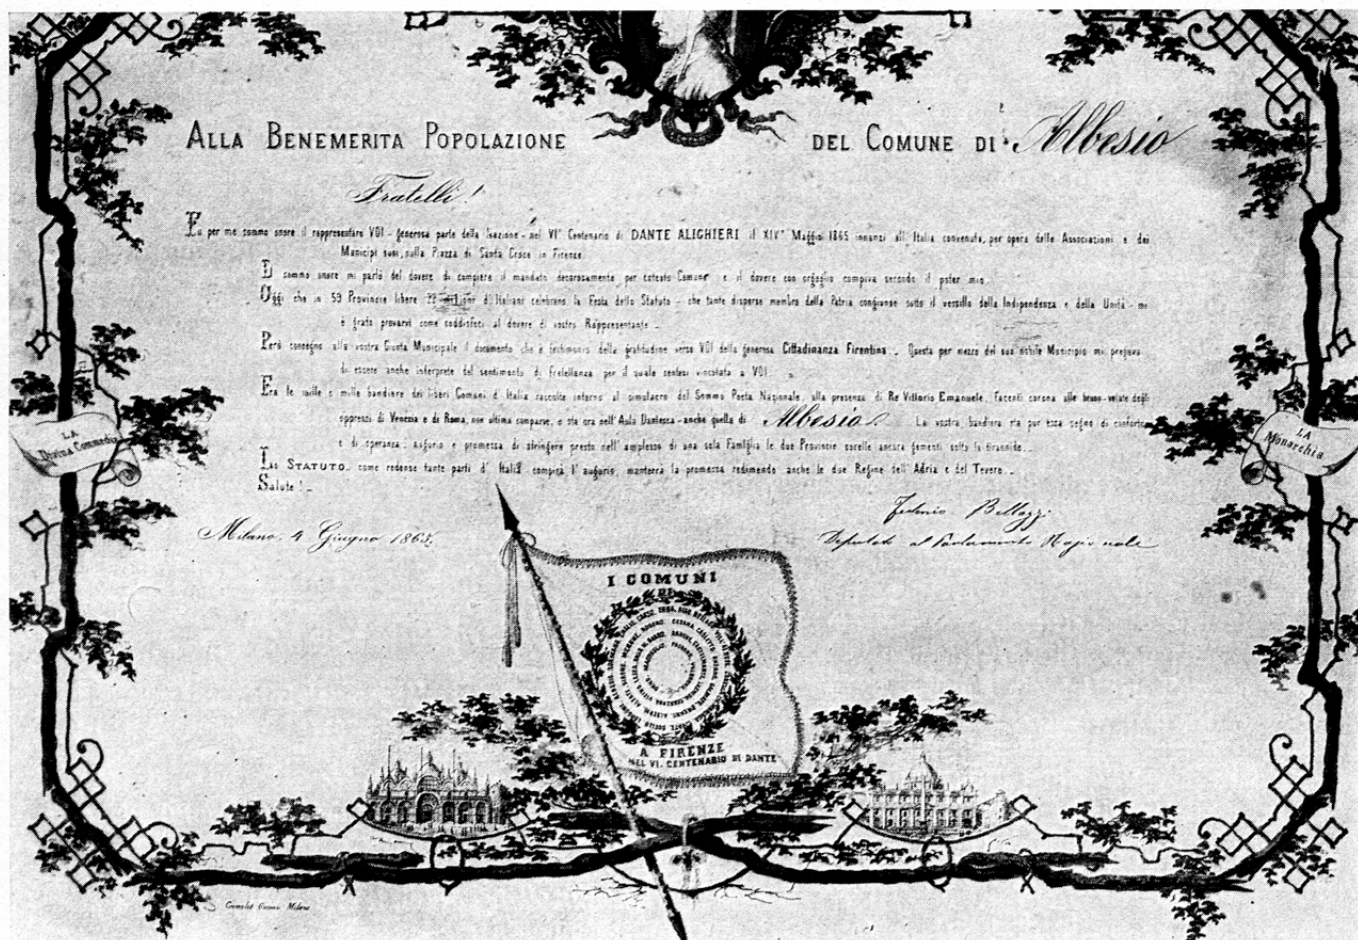 ALLA BENEMERITA POPOLAZIONE DEL COMUNE DI Albesio
Fratelli!
Fu per me sommo onore il rappresentare VOI - generosa parte della Nazione - nel VI° Centenario di DANTE ALIGHIERI il XIV° Maggio 1865 innanzi all' Italia convenuta, per opera delle Associazioni e dei
Municipi suoi, sulla Piazza di Santa Croce in Firenze.
E sommo onore mi parlò del dovere di compiere il mandato decorosamente per cotesto Comune e il dovere con orgoglio compiva secondo il poter mio.
Oggi che in 59 Provincie libere 22 milioni d' Italiani celebrano la Festa dello Statuto - che tante disperse membra della Patria congiunse sotto il vessillo della Indipendenza e della Unità - mi
è grato provarvi come soddisfeci al dovere di vostro Rappresentante -
Però consegno alla vostra Giunta Municipale il documento che è testimonio della gratitudine verso VOI della generosa Cittadinanza Fiorentina. Questa per mezzo del suo nobile Municipio mi pregava
di essere anche interprete del sentimento di fratellanza per il quale sentesi vincolata a VOI.
Fra le mille e mille bandiere dei liberi Comuni d' Italia raccolte intorno al simulacro del Sommo Poeta Nazionale, alla presenza di Re Vittorio Emanuele, facenti corona alle bruno-velate degli
oppressi di Venezia e di Roma, non ultima comparve, e sta ora nell' Aula Dantesca - anche quella di Albesio. La vostra bandiera sia per essa segno di conforto
e di speranza: augurio e promessa di stringere presto nell' amplesso di una sola Famiglia le due Provincie sorelle ancora gementi sotto la tirannide.
Lo STATUTO come redense tante parti d' Italia compirà l' augurio, manterrà la promessa redimendo anche le due Regine dell' Adria e del Tevere.
Salute! -
Milano. 4 Giugno 1865.
Bellazzi
Deputato al Parlamento Nazionale
LA
Divina Commedia
LA
Monarchia
I COMUNI
DI
A FIRENZE
NEL VI. CENTENARIO DI DANTE
Milano